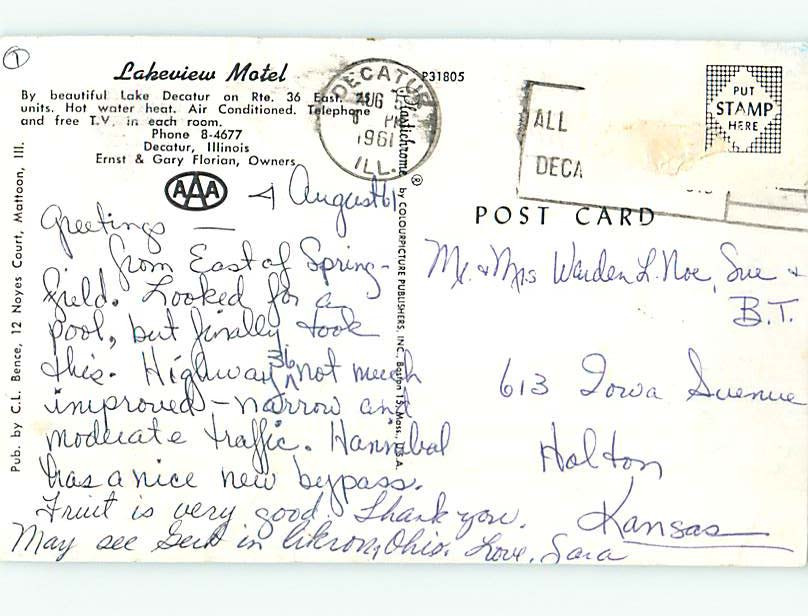 1
Lakeview Motel
P31805
By beautiful Lake Decatur on Rte. 36 East. 25
units. Hot water heat. Air Conditioned. Telephone
and free T.V. in each room.
Phone 8-4677
Decatur, Illinois
Ernst & Gary Florian, Owners
AAA
DECATUR
AUG
PM
1961
ILL.
ALL
DECA
PUT
STAMP
HERE
Pub. by C.L. Bence, 12 Noyes Court, Mattoon, Ill.
Plastichrome ® by COLOURPICTURE PUBLISHERS, INC., Boston 15, Mass., U.S.A.
POST CARD
4 August 61
Greetings —
from East of Spring-
field. Looked for a
pool, but finally took
this. Highway 36 not much
improved - narrow and
moderate traffic. Hannibal
has a nice new bypass.
Fruit is very good. Thank you.
May see in Akron, Ohio. Love, Sara
Mr. & Mrs Warden L. Noe, Sue &
B.T.
613 Iowa Avenue
Holton
Kansas